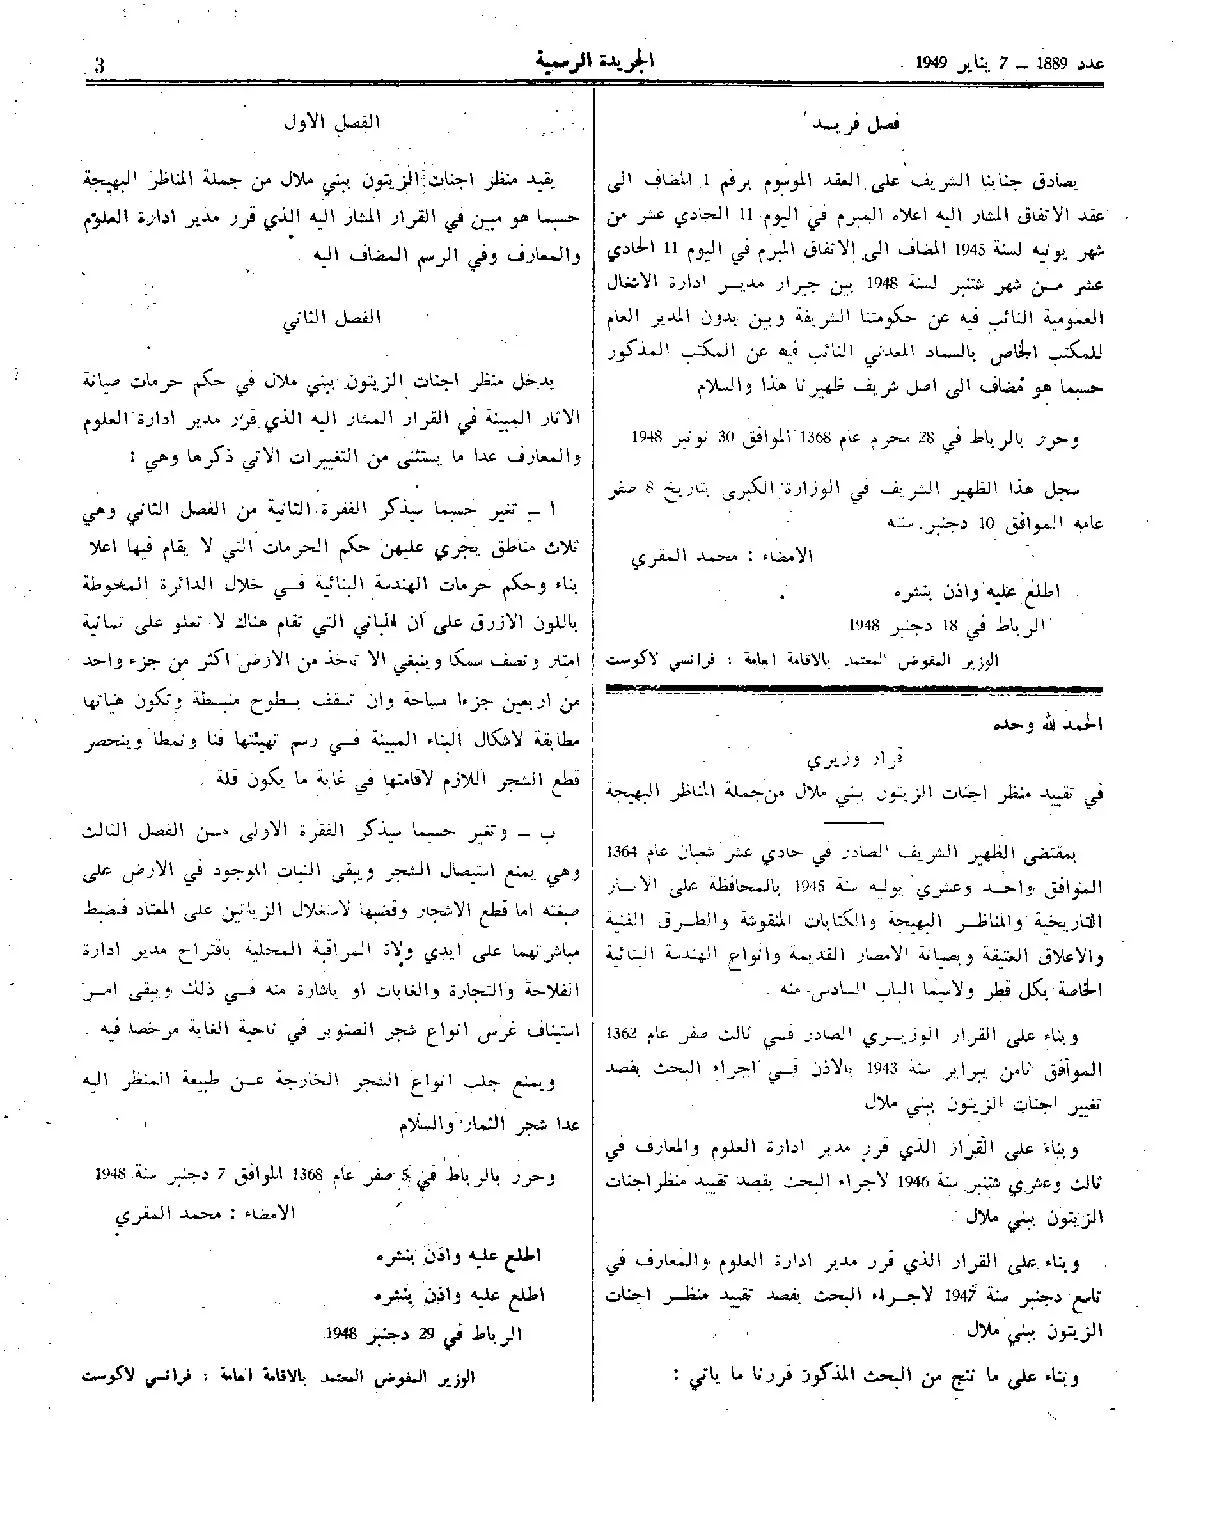 عدد 1889 ــ 7 يناير 1949
الجريدة الرسمية
3
فصل فريد
يصادق جنابنا الشريف على العقد الموسوم برقم 1 المضاف الى
عقد الاتفاق المشار اليه اعلاه المبرم في اليوم 11 الحادي عشر من
شهر يونيه لسنة 1945 المضاف الى الاتفاق المبرم في اليوم 11 الحادي
عشر من شهر شتنبر لسنة 1948 بين جيرار مدير ادارة الاشغال
العمومية النائب فيه عن حكومتنا الشريفة وبين بدون المدير العام
للمكتب الخاص بالسماد المعدني النائب فيه عن المكتب المذكور
حسبما هو مضاف الى اصل شريف ظهيرنا هذا والسلام
وحرر بالرباط في 28 محرم عام 1368 الموافق 30 نونبر 1948
سجل هذا الظهير الشريف في الوزارة الكبرى بتاريخ 8 صفر
عامه الموافق 10 دجنبر سنه
الامضاء : محمد المقري
اطلع عليه واذن بنشره
الرباط في 18 دجنبر 1948
الوزير المفوض المعتمد بالاقامة العامة : فرانسي لاكوست
الحمد لله وحده
قرار وزيري
في تقييد منظر اجنات الزيتون ببني ملال من جملة المناظر البهيجة
بمقتضى الظهير الشريف الصادر في حادي عشر شعبان عام 1364
الموافق واحد وعشري يوليه سنة 1945 بالمحافظة على الآثار
التاريخية والمناظر البهيجة والكتابات المنقوشة والطرق الفنية
والاعلاق العتيقة وبصيانة الامصار القديمة وانواع الهندسة البنائية
الخاصة بكل قطر ولاسيما الباب السادس منه .
وبناء على القرار الوزيري الصادر في ثالث صفر عام 1362
الموافق ثامن يبراير سنة 1943 بالاذن في اجراء البحث بقصد
تغيير اجنات الزيتون ببني ملال
وبناء على القرار الذي قرر مدير ادارة العلوم والمعارف في
ثالث وعشري شتنبر سنة 1946 لاجراء البحث بقصد تقييد منظر اجنات
الزيتون ببني ملال
وبناء على القرار الذي قرر مدير ادارة العلوم والمعارف في
تاسع دجنبر سنة 1947 لاجراء البحث بقصد تقييد منظر اجنات
الزيتون ببني ملال
وبناء على ما نتج من البحث المذكور قررنا ما ياتي :
الفصل الاول
يقيد منظر اجنات الزيتون ببني ملال من جملة المناظر البهيجة
حسبما هو مبين في القرار المشار اليه الذي قرر مدير ادارة العلوم
والمعارف وفي الرسم المضاف اليه .
الفصل الثاني
يدخل منظر اجنات الزيتون ببني ملال في حكم حرمات صيانة
الاثار المبينة في القرار المشار اليه الذي قرر مدير ادارة العلوم
والمعارف عدا ما يستثنى من التغييرات الاتي ذكرها وهي :
ا ــ تغير حسبما سيذكر الفقرة الثانية من الفصل الثاني وهي
ثلاث مناطق يجري عليهن حكم الحرمات التي لا يقام فيها اعلا
بناء وحكم حرمات الهندسة البنائية في خلال الدائرة المخوطة
باللون الازرق على ان المباني التي تقام هناك لا تعلو على ثمانية
امتار ونصف سمكا وينبغي الا تاخذ من الارض اكثر من جزء واحد
من اربعين جزءا مساحة وان تسقف بسطوح منبسطة وتكون هياتها
مطابقة لاشكال البناء المبينة في رسم تهيئتها فنا ونمطا وينحصر
قطع الشجر اللازم لاقامتها في غاية ما يكون قلة .
ب ــ وتغير حسبما سيذكر الفقرة الاولى من الفصل الثالث
وهي يمنع استيصال الشجر ويبقى النبات الموجود في الارض على
صفته اما قطع الاشجار وقضبها لاستغلال الزياتين على المعتاد فيضبط
مباشرتهما على ايدي ولاة المراقبة المحلية باقتراح مدير ادارة
الفلاحة والتجارة والغابات او باشارة منه في ذلك ويبقى امر
استيناف غرس انواع شجر الصنوبر في ناحية الغابة مرخصا فيه .
ويمنع جلب انواع الشجر الخارجة عن طبيعة المنظر اليه
عدا شجر الثمار والسلام
وحرر بالرباط في 5 صفر عام 1368 الموافق 7 دجنبر سنة 1948
الامضاء : محمد المقري
اطلع عليه واذن بنشره
اطلع عليه واذن بنشره
الرباط في 29 دجنبر 1948
الوزير المفوض المعتمد بالاقامة العامة : فرانسي لاكوست